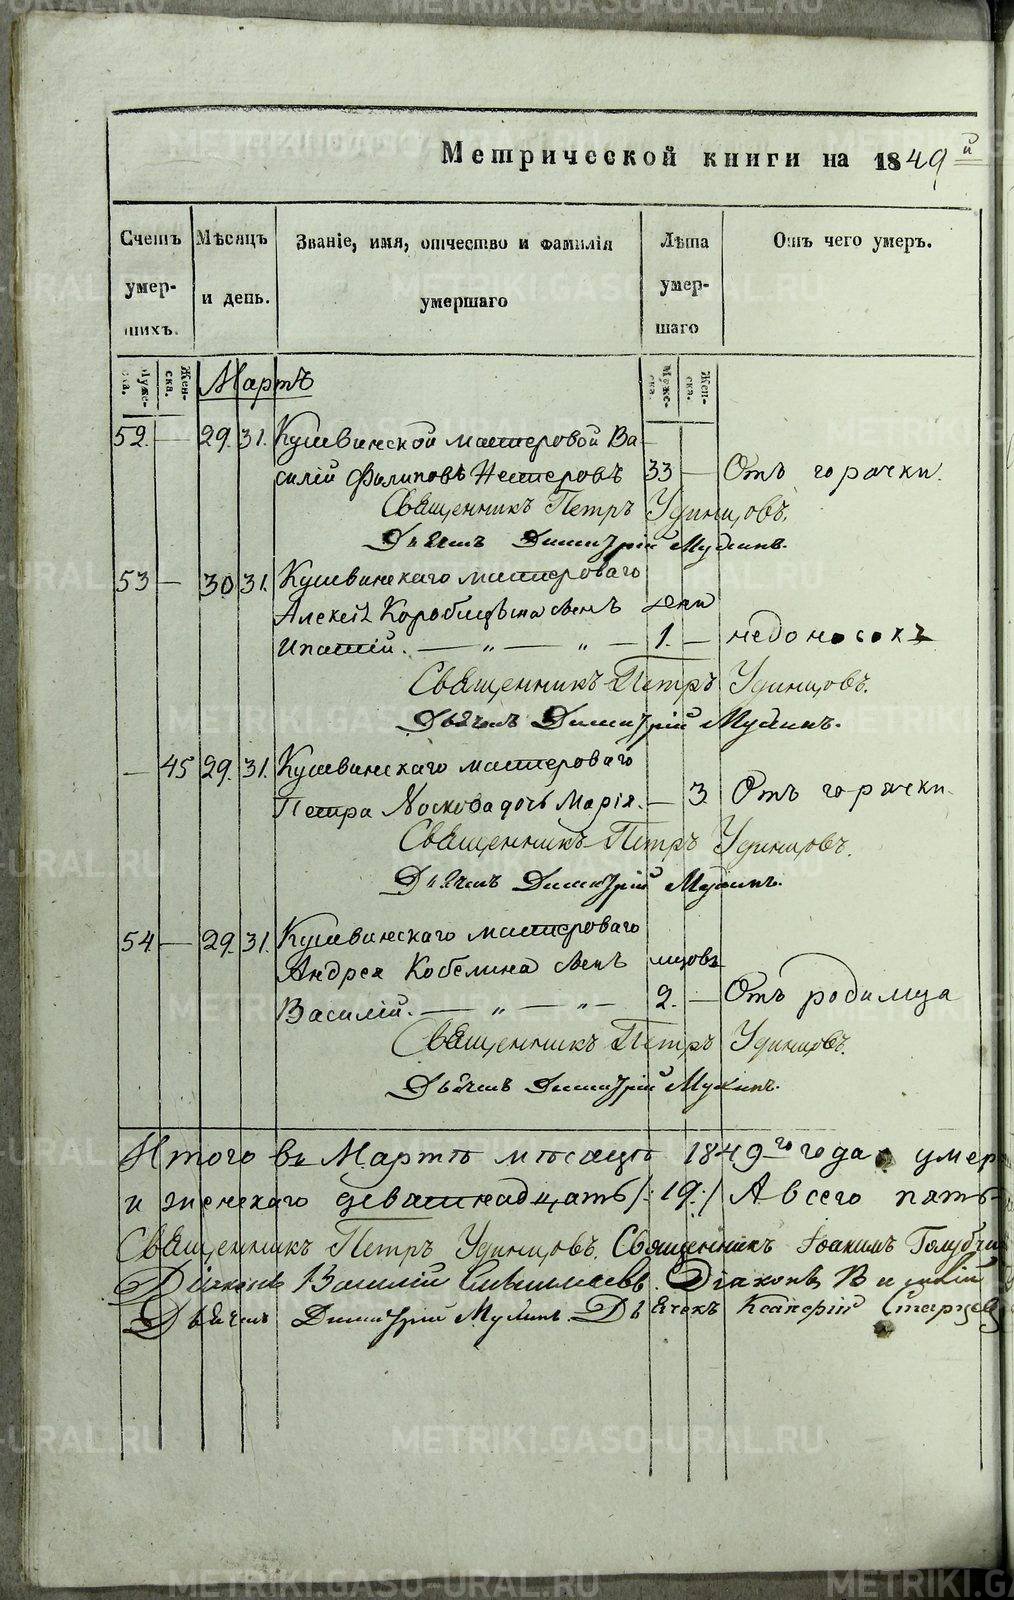 Метрической книги на 1849й
Счетъ умер- шихъ.
Мѣсяцъ и день.
Званіе, имя, отчество и фамилія умершаго
Лѣта умер- шаго
Отъ чего умеръ.
Муже- ска.
Жен- ска.
Мартъ
Муже- ска.
Жен- ска.
52. — 29. 31. Кушвинской мастеровой Ва-
силій Филиповъ Нестеровъ 33 — Отъ горячки.
Священникъ Петръ Удинцовъ.
Дьячекъ Димитрій Мухинъ.
53 — 30 31. Кушвинскаго мастероваго
Алексѣя сынъ дни
Ипатій. — „ — „ — 1. — недоносокъ
Священникъ Петръ Удинцовъ.
Дьячекъ Димитрій Мухинъ.
— 45 29. 31. Кушвинскаго мастероваго
Петра Носкова дочь Марія. — 3 Отъ горячки
Священникъ Петръ Удинцовъ.
Дьячекъ Димитрій Мухинъ.
54 — 29. 31. Кушвинскаго мастероваго
Андрея Кобелина сынъ мцовъ
Василій. — „ — „ — 2. — Отъ родимца
Священникъ Петръ Удинцовъ.
Дьячекъ Димитрій Мухинъ.
Итого въ Мартѣ мѣсяцѣ 1849го года умер
и женскаго девятнадцать /:19:/ А всего пять
Священникъ Петръ Удинцовъ. Священникъ Іоакимъ
Діаконъ Василій Діаконъ
Дьячекъ Димитрій Мухинъ. Дьячекъ Ксанфрій Старцев
METRIKI.GASO-URAL.RU